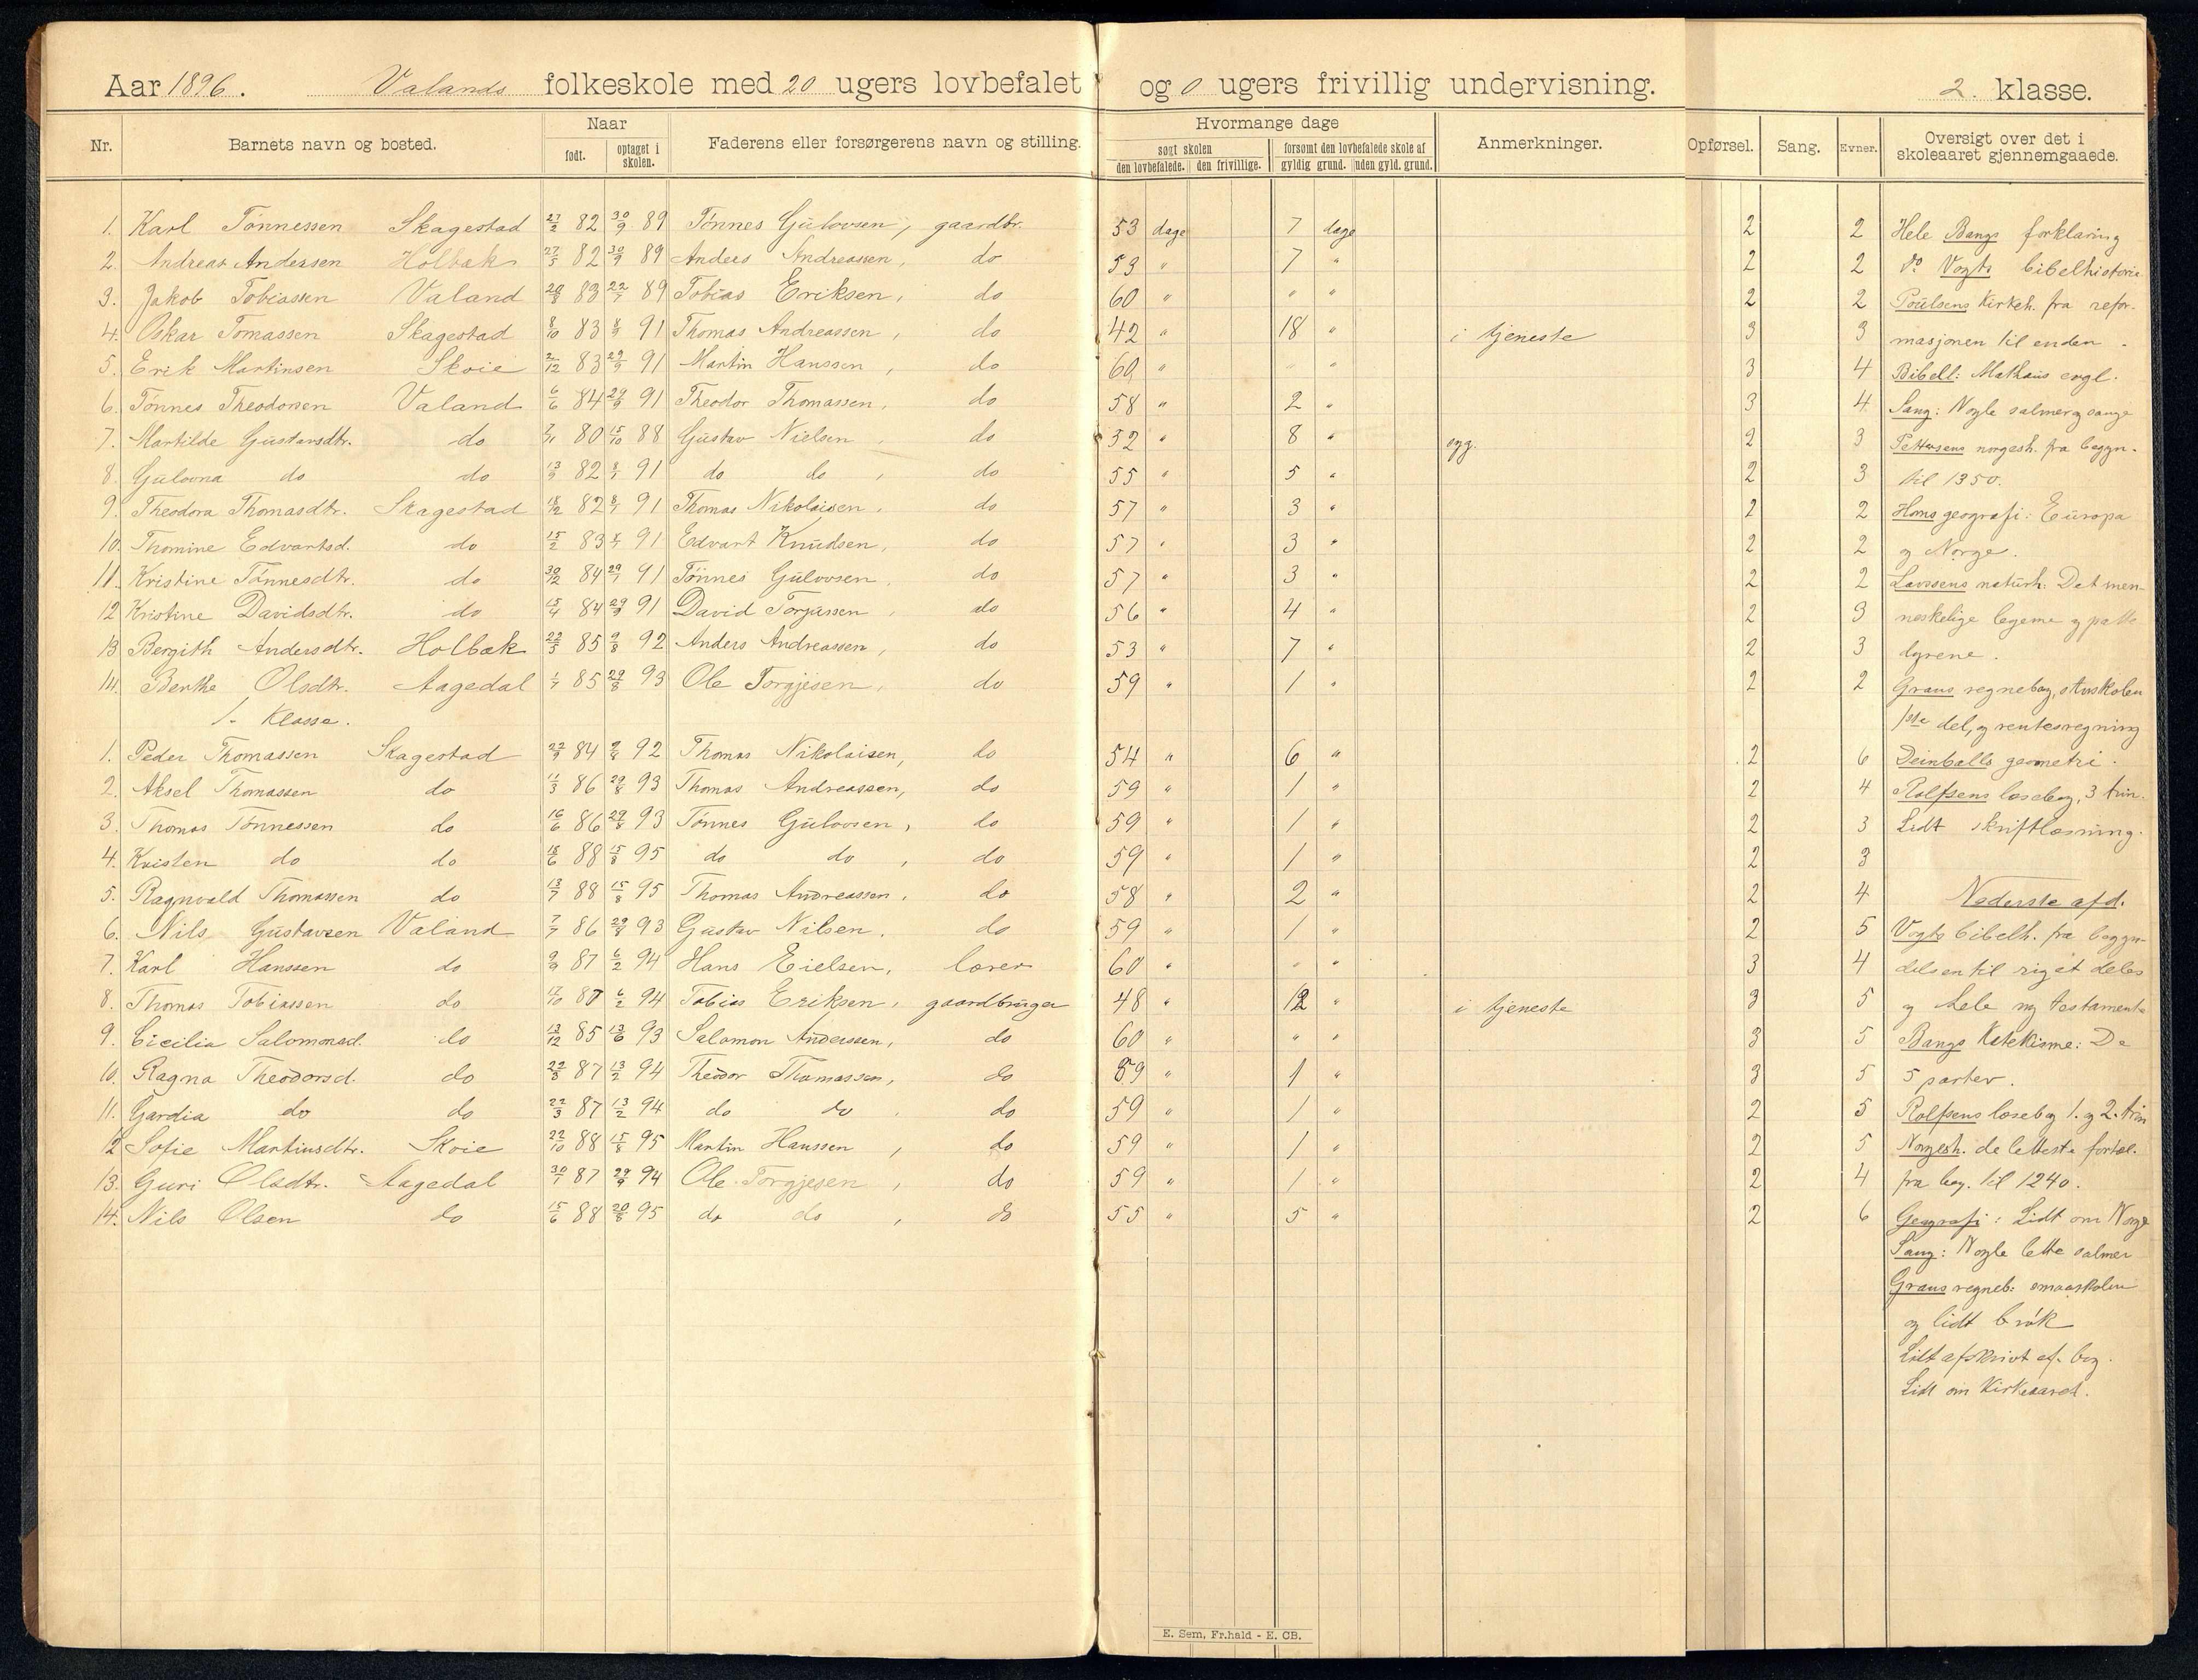 Aar 1896. Valands folkeskole med 20 ugers lovbefalet og 0 ugers frivillig undervisning. 2. klasse.
Nr. Barnets navn og bosted. Naar født. optaget i skolen. Faderens eller forsørgerens navn og stilling. Hvormange dage søgt skolen den lovbefalede. den frivillige. forsømt den lovbefalede skole af gyldig grund. uden gyld. grund. Anmerkninger. Opførsel. Sang. Evner. Oversigt over det i skoleaaret gjennemgaaede.
1. Karl Tønnessen Skagestad 27/2 82 30/9 89 Tønnes Gulovsen, gaardbr. 53 dage 7 dage 2 2 Hele Bangs forklaring
2. Andreas Anderssen Holbæk 27/5 82 30/9 89 Anders Andreassen, do 53 " 7 " 2 2 do Vogts bibelhistorie
3. Jakob Tobiassen Valand 20/8 83 22/7 89 Tobias Eriksen, do 60 " " " 2 2 Poulsens Kirkeh. fra refor-
4. Oskar Tomassen Skagestad 8/10 83 8/9 91 Thomas Andreassen, do 42 " 18 " i tjeneste 3 3 masjonen til enden.
5. Erik Martinsen Skoie 2/12 83 29/9 91 Martin Hanssen, do 60 " " " 3 4 Bibell: Mathæus evgl.
6. Tønnes Theodorsen Valand 6/6 84 29/9 91 Theodor Thomassen, do 58 " 2 " 3 4 Sang: Nogle salmer og sange
7. Martilde Gustavsdtr. do 2/11 80 15/10 88 Gustav Nielsen, do 32 " 8 " syg. 2 3 Pettersens norgesh. fra begyn-
8. Gulovna do do 13/9 82 8/1 91 do do, do 55 " 5 " 2 3 til 1350.
9. Theodora Thomasdtr. Skagestad 18/12 82 8/9 91 Thomas Nikolaisen, do 57 " 3 " 2 2 Horns geografi: Europa
10. Thomine Edvartsd. do 15/2 83 8/9 91 Edvart Knudsen, do 57 " 3 " 2 2 og Norge.
11. Kristine Tønnesdtr. do 30/12 84 29/9 91 Tønnes Gulovsen, do 57 " 3 " 2 2 Larssens naturh: Det men-
12 Kristine Davidsdtr. do 15/4 84 29/9 91 David Torjussen, do 56 " 4 " 2 3 neskelige legeme og patte-
13 Bergith Andersdtr. Holbæk 22/5 85 9/8 92 Anders Andreassen, do 53 " 7 " 2 3 dyrene.
14. Benthe Olsdtr. Aagedal 1/7 85 29/8 93 Ole Torgjesen, do 59 " 1 " 2 2 Graus regnebog, storskolen
1. Klasse. 1ste del, og rentesregning
1. Peder Thomassen Skagestad 22/9 84 9/8 92 Thomas Nikolaisen, do 54 " 6 " 2 6 Deinbolls geometri.
2. Aksel Thomassen do 11/3 86 29/8 93 Thomas Andreassen, do 59 " 1 " 2 4 Rolfsens læsebog, 3 trin.
3. Thomas Tønnessen do 16/6 86 29/8 93 Tønnes Gulovsen, do 59 " 1 " 2 3 Lidt skriftlæsning.
4. Kristen do do 18/6 88 15/8 95 do do, do 59 " 1 " 2 3
5. Ragnvald Thomassen do 13/7 88 15/8 95 Thomas Andreassen, do 58 " 2 " 2 4 Nederste afd.
6. Nils Gustavsen Valand 7/7 86 29/8 93 Gustav Nilsen, do 59 " 1 " 2 5 Vogts bibelh. fra begyn-
7. Karl Hanssen do 9/9 87 6/2 94 Hans Eielsen, lærer 60 " " " 3 4 delsen til riget deles
8. Thomas Tobiassen do 17/10 87 6/2 94 Tobias Eriksen, gaardbruger 48 " 12 " i tjeneste 3 5 og hele ny testamente
9. Cicilia Salomonsd. do 13/12 85 13/6 93 Salomon Anderssen, do 60 " " " 3 5 Bangs Katekisme: De
10. Ragna Theodorsd. do 22/3 87 13/2 94 Theodor Thomassen, do 59 " 1 " 3 5 5 parter.
11. Gardia do do 22/3 87 13/2 94 do do, do 59 " 1 " 2 5 Rolfsens læsebog 1. og 2. trin
12 Sofie Martinsdtr. Skoie 22/10 88 15/8 95 Martin Hanssen, do 59 " 1 " 2 5 Norgesh. de letteste fortæl.
13. Guri Olsdtr. Aagedal 30/1 87 29/9 94 Ole Torgjesen, do 59 " 1 " 2 4 fra beg. til 1240.
14. Nils Olsen do 15/6 88 20/8 95 do do, do 55 " 5 " 2 6 Geografi: Lidt om Norge
Sang: Nogle lette salmer
Graus regneb: smaaskolen
og lidt brøk
Lidt afskrivt af bog.
Lidt om Kirkeaaret.
E. Sem, Fr.hald - E. CB.